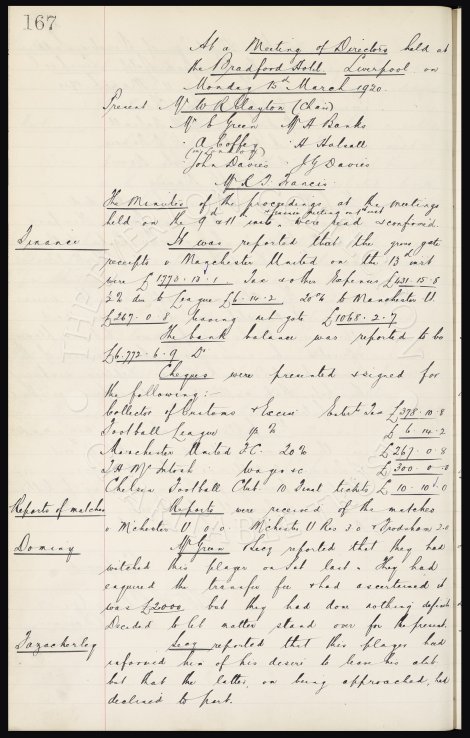 167
At a Meeting of Directors held at
the Bradford Hotel Liverpool on
Monday 15th March 1920.
Present Mr W R Clayton (Chair)
Mr E Green Mr A Banks
A Coffey A Halsall
John Davies J G Davies
Mr R T Francis
The Minutes of the proceedings at the meetings
held on the 9th & 11 inst were read & confirmed.
Finance It was reported that the gross gate
receipts v Manchester United on the 13th inst
were £1773.13.1 Tax & other Expenses £431.15.8
½% due to League £6.14.2 20% to Manchester U
£267.0.8 leaving net gate £1068.2.7
The bank balance was reported to be
£6,772.6.9 Dr
Cheques were presented & signed for
the following:
Collector of Customs & Excise Entert Tax £378.10.8
Football League ½% £6.14.2
Manchester United F.C. 20% £267.0.8
T H McIntosh wages &c £300.0.0
Chelsea Football Club 10 Final tickets £10.10.0
Reports of matches Reports were received of the matches
v Mchester U 0.0. Mchester U Res 3.0 & Frodsham 3.0
Mr Green & Secy reported that they had
watched this player on Sat last & they had
enquired the transfer fee & had ascertained it
was £2000 but they had done nothing definite
Decided to let matter stand over for the present.
Fazackerley Secy reported that this player had
informed him of his desire to leave his club
but that the latter, on being approached, had
declined to part.